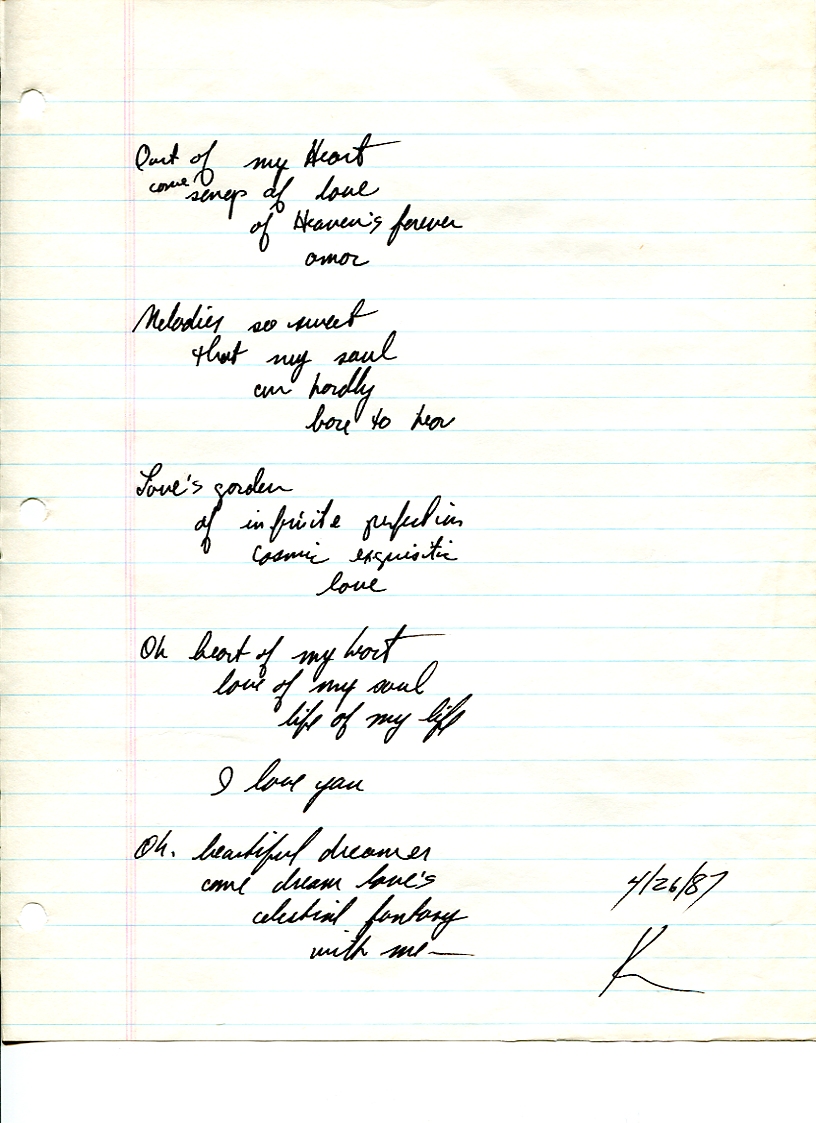 Out of my Heart
come songs of love
of Heaven's forever
amor
Melodies so sweet
that my soul
can hardly
bare to hear
Love's garden
of infinite perfection
cosmic exquisitic
love
Oh heart of my heart
love of my soul
life of my life
I love you
Oh. beautiful dreamer
come dream love's
celestial fantasy
with me—
4/26/87
K